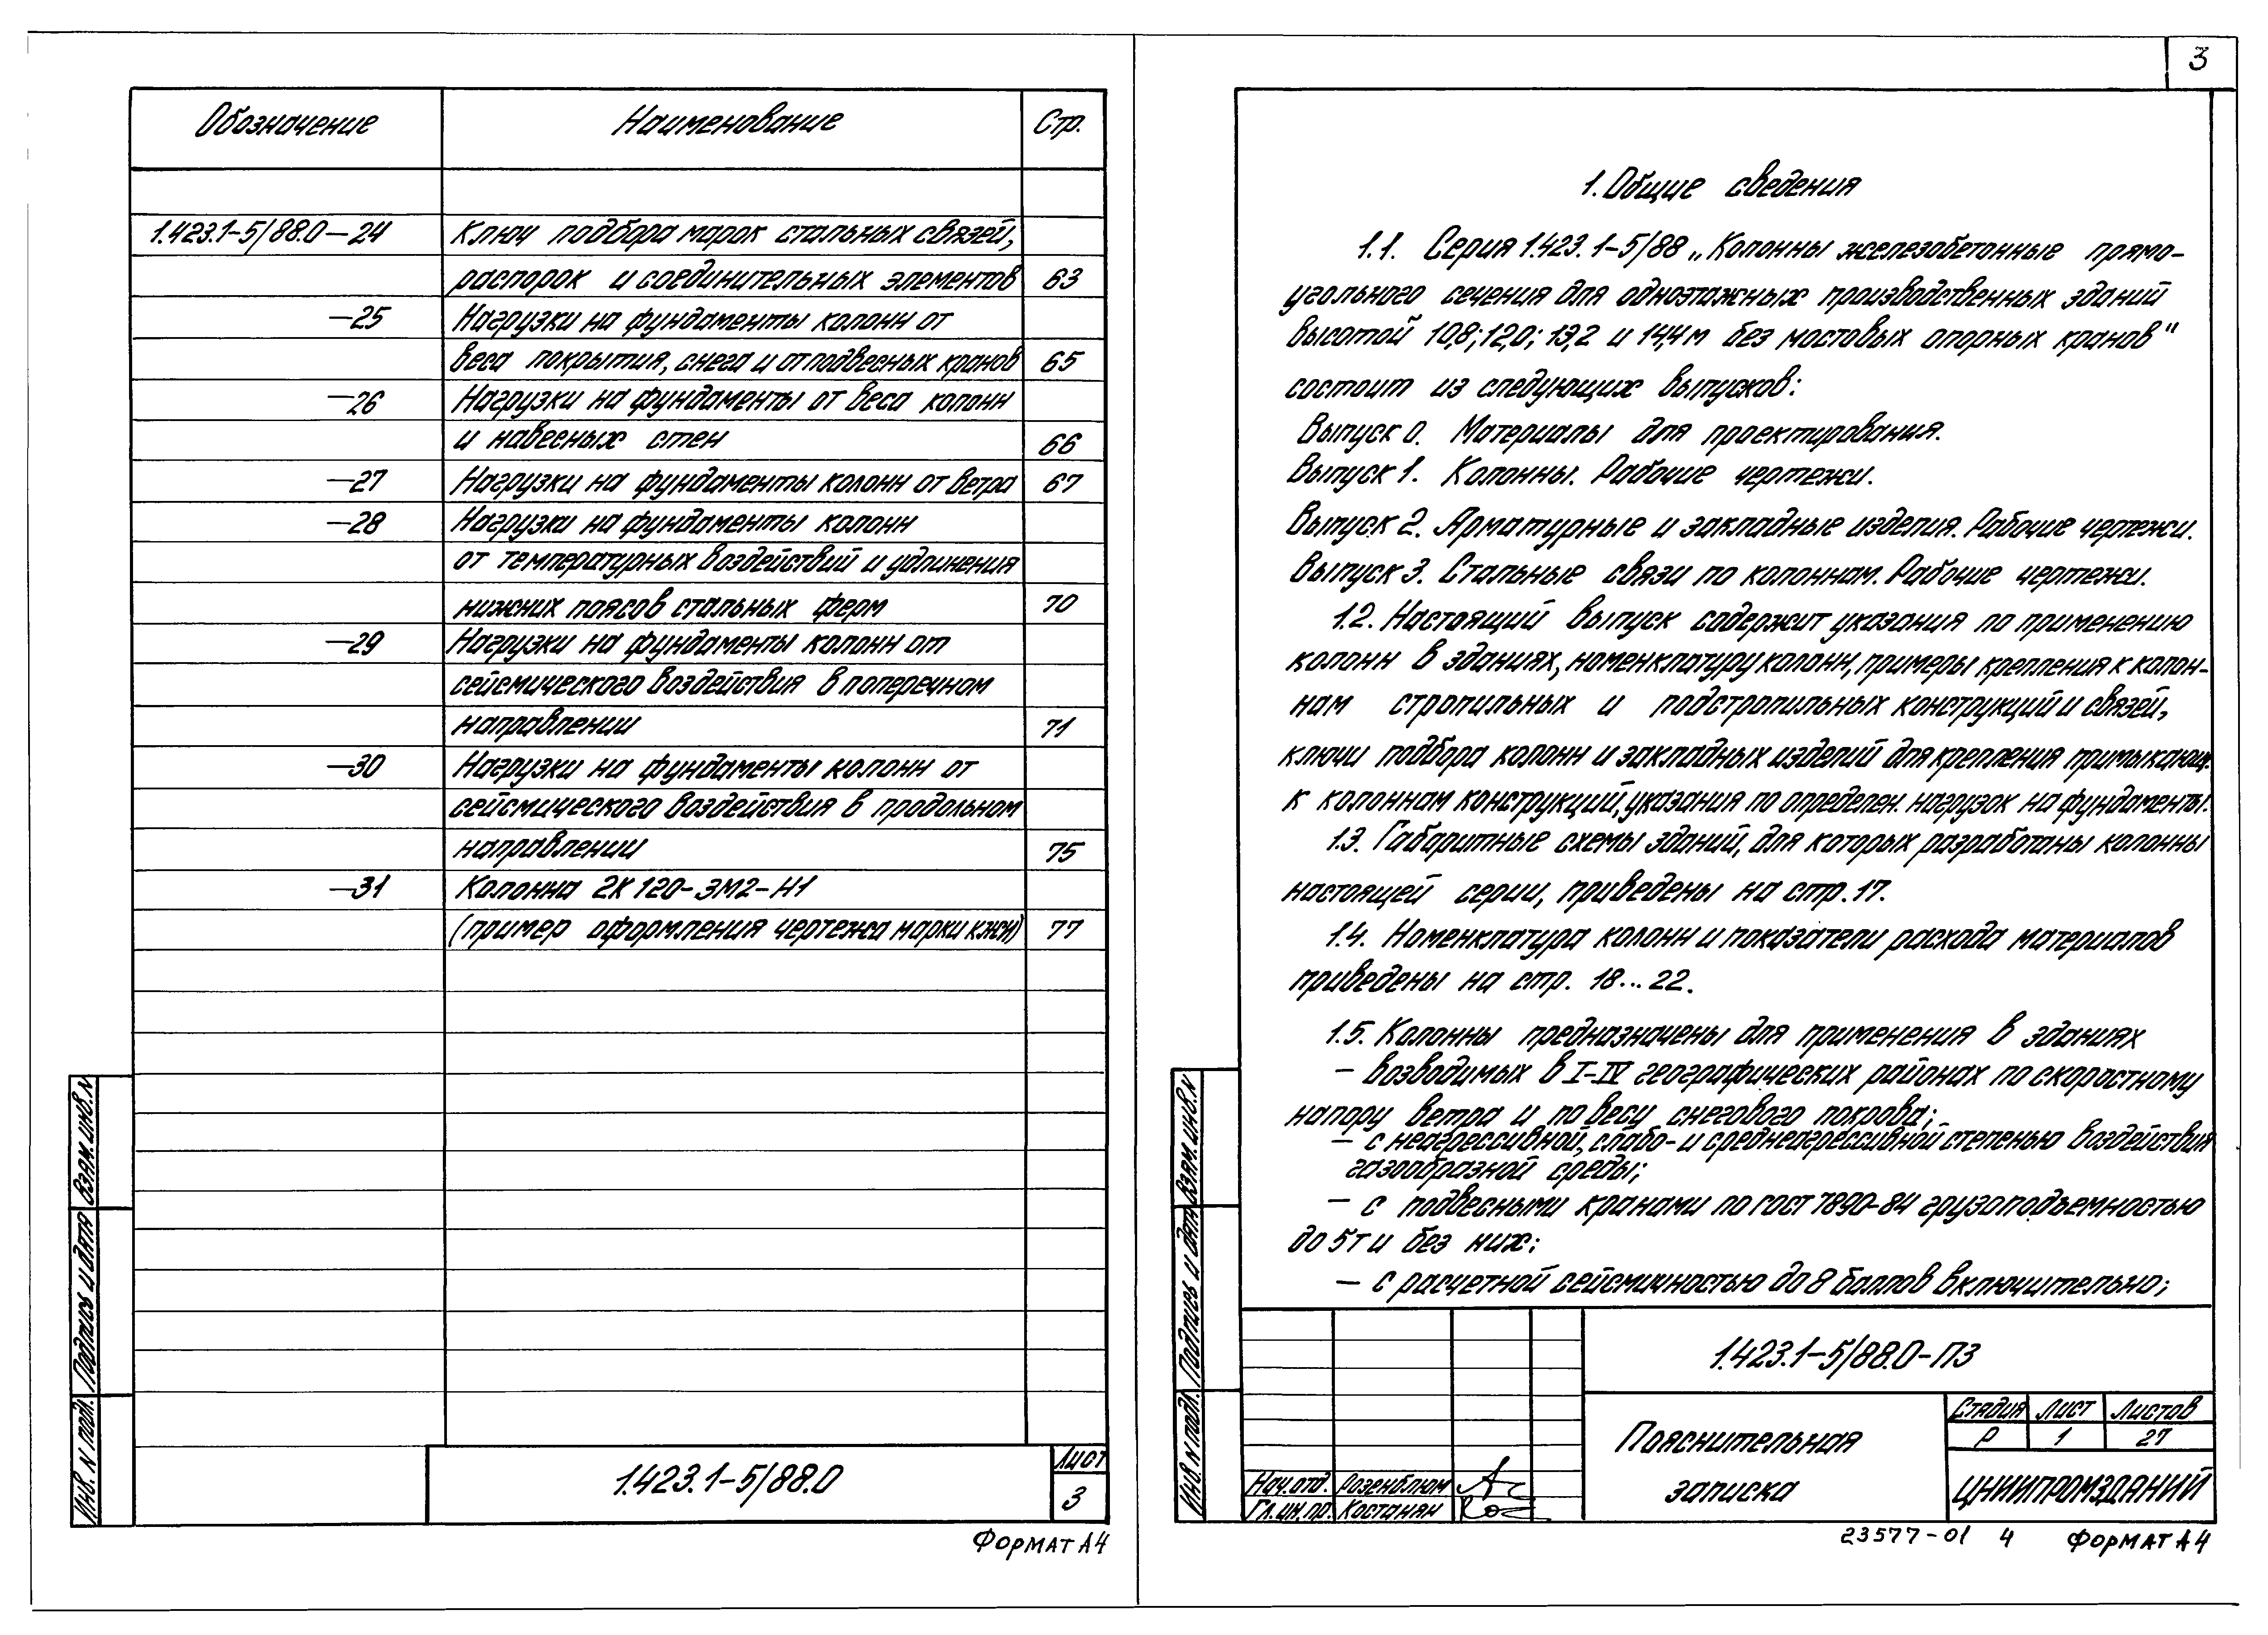 Обозначение Наименование Стр.
1.423.1-5/88.0-24 Ключ подбора марок стальных связей,
распорок и соединительных элементов 63
-25 Нагрузки на фундаменты колонн от
веса покрытия, снега и от подвесных кранов 65
-26 Нагрузки на фундаменты от веса колонн
и навесных стен 66
-27 Нагрузки на фундаменты колонн от ветра 67
-28 Нагрузки на фундаменты колонн
от температурных воздействий и удлинения
нижних поясов стальных ферм 70
-29 Нагрузки на фундаменты колонн от
сейсмического воздействия в поперечном
направлении 71
-30 Нагрузки на фундаменты колонн от
сейсмического воздействия в продольном
направлении 75
-31 Колонна 2К120-3М2-Н1
(пример оформления чертежа марки кжи) 77
Взам. инв. N
Подпись и дата
Инв. N подл.
1.423.1-5/88.0
Лист
3
Формат А4
3
1. Общие сведения
1.1. Серия 1.423.1-5/88 „Колонны железобетонные прямо-
угольного сечения для одноэтажных производственных зданий
высотой 10,8; 12,0; 13,2 и 14,4 м без мостовых опорных кранов"
состоит из следующих выпусков:
Выпуск 0. Материалы для проектирования.
Выпуск 1. Колонны. Рабочие чертежи.
Выпуск 2. Арматурные и закладные изделия. Рабочие чертежи.
Выпуск 3. Стальные связи по колоннам. Рабочие чертежи.
1.2. Настоящий выпуск содержит указания по применению
колонн в зданиях, номенклатуру колонн, примеры крепления к колон-
нам стропильных и подстропильных конструкций и связей,
ключи подбора колонн и закладных изделий для крепления примыкающ.
к колоннам конструкций, указания по определен. нагрузок на фундаменты.
1.3. Габаритные схемы зданий, для которых разработаны колонны
настоящей серии, приведены на стр. 17.
1.4. Номенклатура колонн и показатели расхода материалов
приведены на стр. 18...22.
1.5. Колонны предназначены для применения в зданиях
- возводимых в I-IV географических районах по скоростному
напору ветра и по весу снегового покрова;
- с неагрессивной, слабо- и среднеагрессивной степенью воздействия
газообразной среды;
- с подвесными кранами по ГОСТ 7890-84 грузоподъемностью
до 5т и без них;
- с расчетной сейсмичностью до 8 баллов включительно;
Взам. инв. N
Подпись и дата
Инв. N подл.
1.423.1-5/88.0-ПЗ
Пояснительная
записка
Стадия Лист Листов
Р 1 27
ЦНИИПРОМЗДАНИЙ
Нач. отд. Розенблюм
Гл. ин. пр. Костанян
23577-01 4 Формат А4